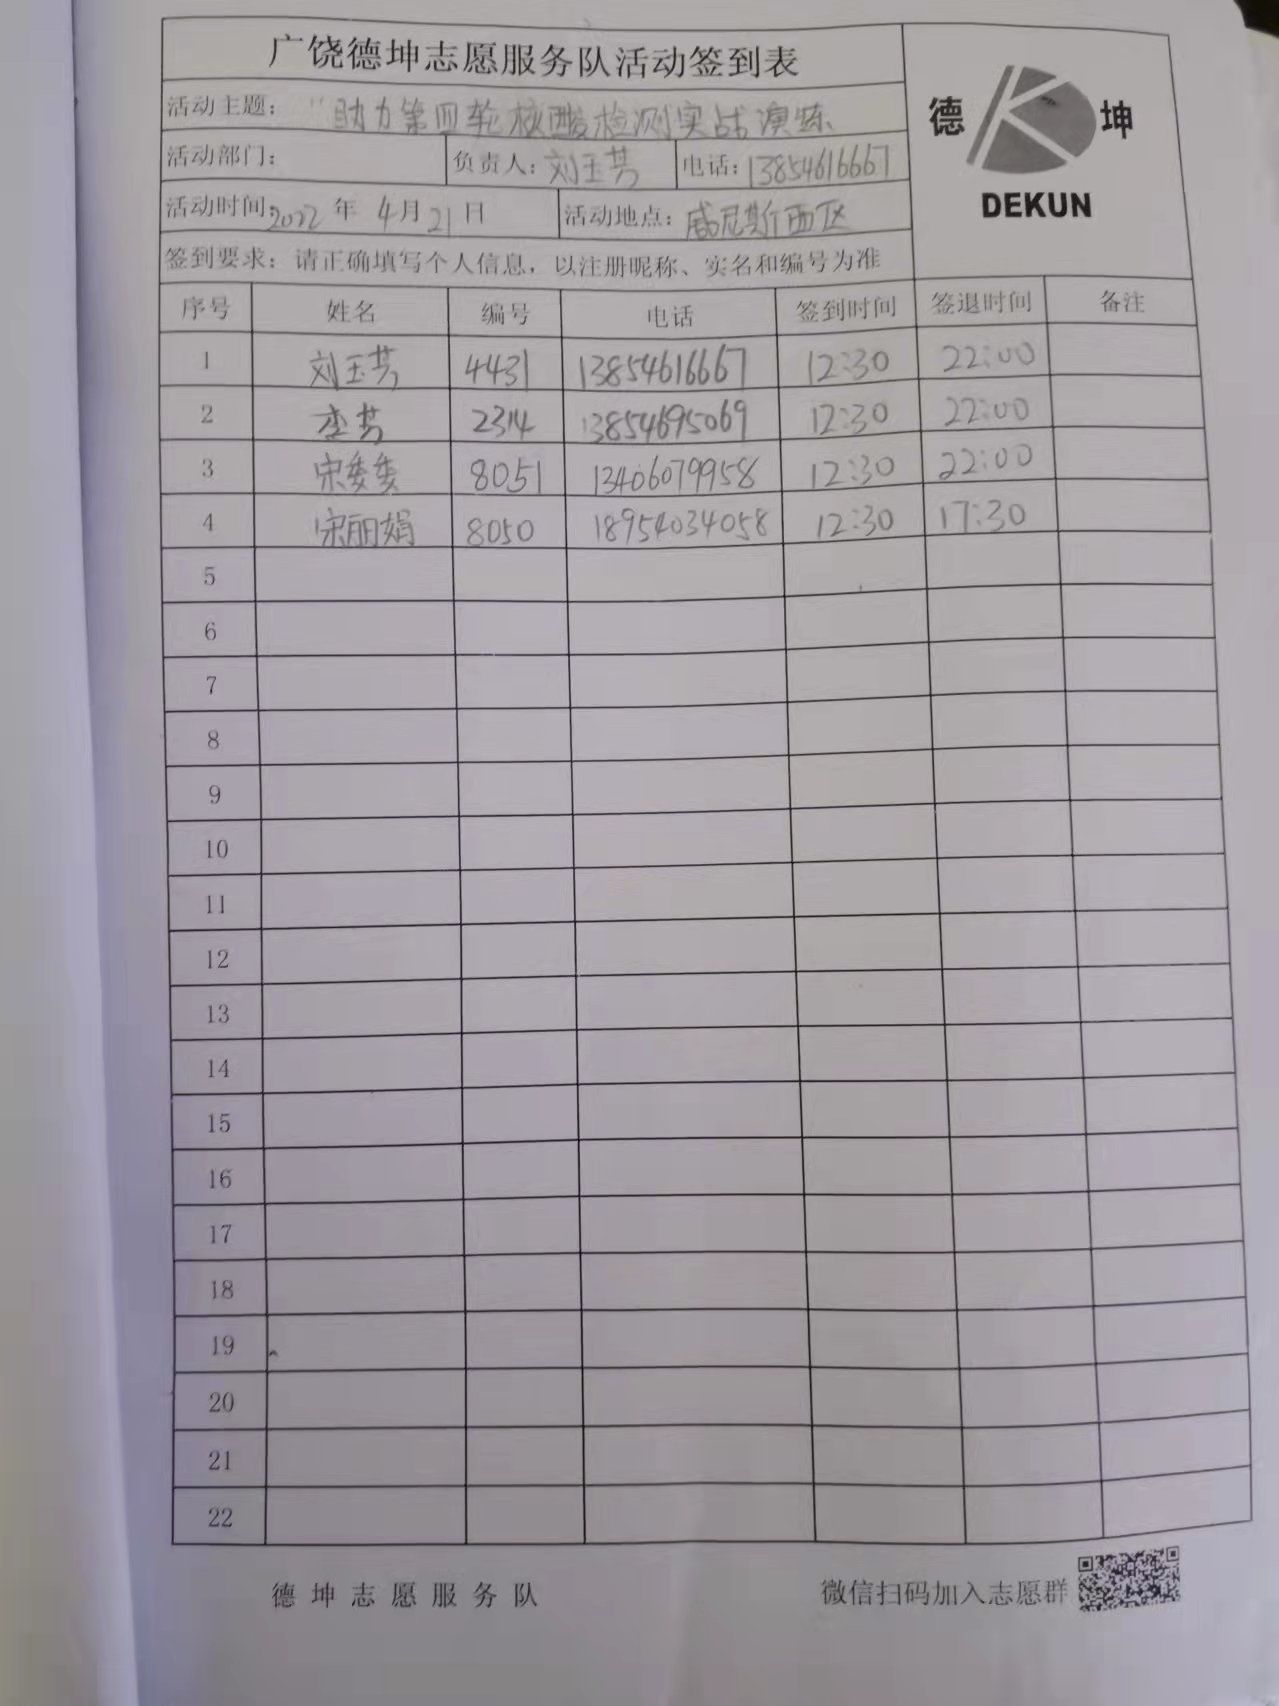 广饶德坤志愿服务队活动签到表
德 坤
DEKUN
活动主题："助力第四轮核酸检测实战演练
活动部门： 负责人：刘玉芳 电话：13854616667
活动时间：2022 年 4月21日 活动地点：威尼斯西区
签到要求：请正确填写个人信息，以注册昵称、实名和编号为准
序号 姓名 编号 电话 签到时间 签退时间 备注
1 刘玉芳 4431 13854616667 12:30 22:00
2 李芳 2314 13854695069 12:30 22:00
3 宋委委 8051 13406079958 12:30 22:00
4 宋丽娟 8050 18954034058 12:30 17:30
5
6
7
8
9
10
11
12
13
14
15
16
17
18
19
20
21
22
德坤志愿服务队 微信扫码加入志愿群